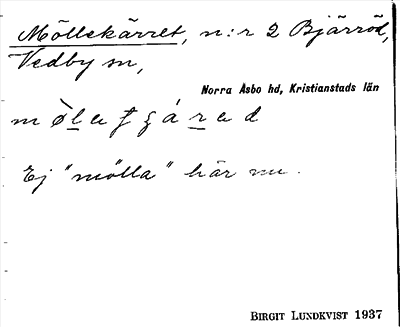 Möllekärret, n:r 2 Bjärröd,
Vedby sn,
Norra Åsbo hd, Kristianstads län
Ej "mölla" här nu.
BIRGIT LUNDKVIST 1937